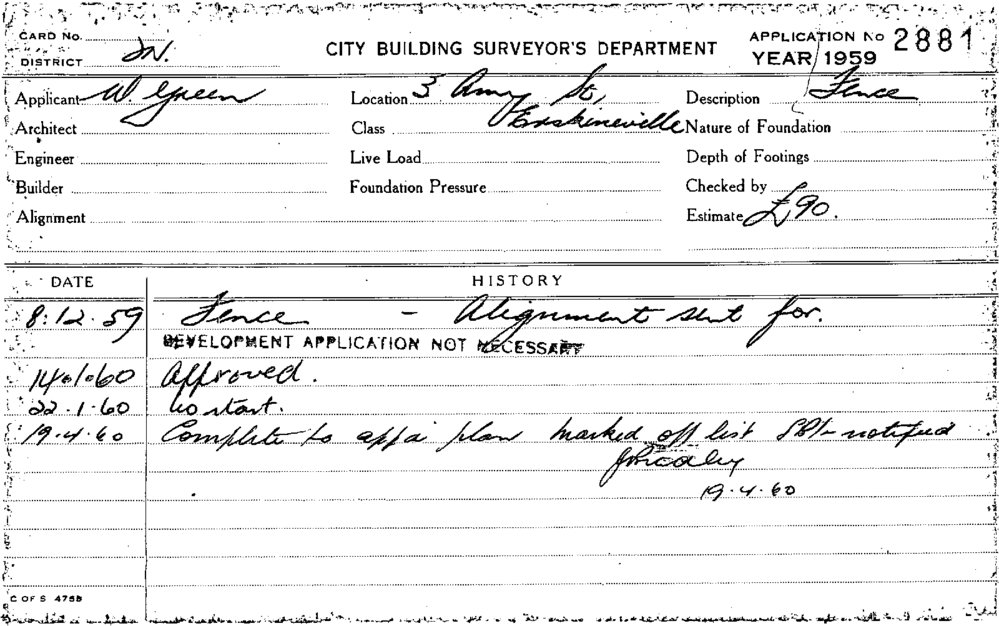 CARD No.
DISTRICT
CITY BUILDING SURVEYOR'S DEPARTMENT
APPLICATION No 2881
YEAR 1959
Applicant W. Green
Location 3 Amy St, Erskineville
Description Fence
Architect
Class
Nature of Foundation
Engineer
Live Load
Depth of Footings
Builder
Foundation Pressure
Checked by
Alignment
Estimate £90.
DATE HISTORY
8.12.59 Fence - Alignment sent for.
DEVELOPMENT APPLICATION NOT NECESSARY
14.1.60 Approved.
22.1.60 No start.
19.4.60 Complete to app'd plan marked off list notified
19.4.60
C OF S 475B